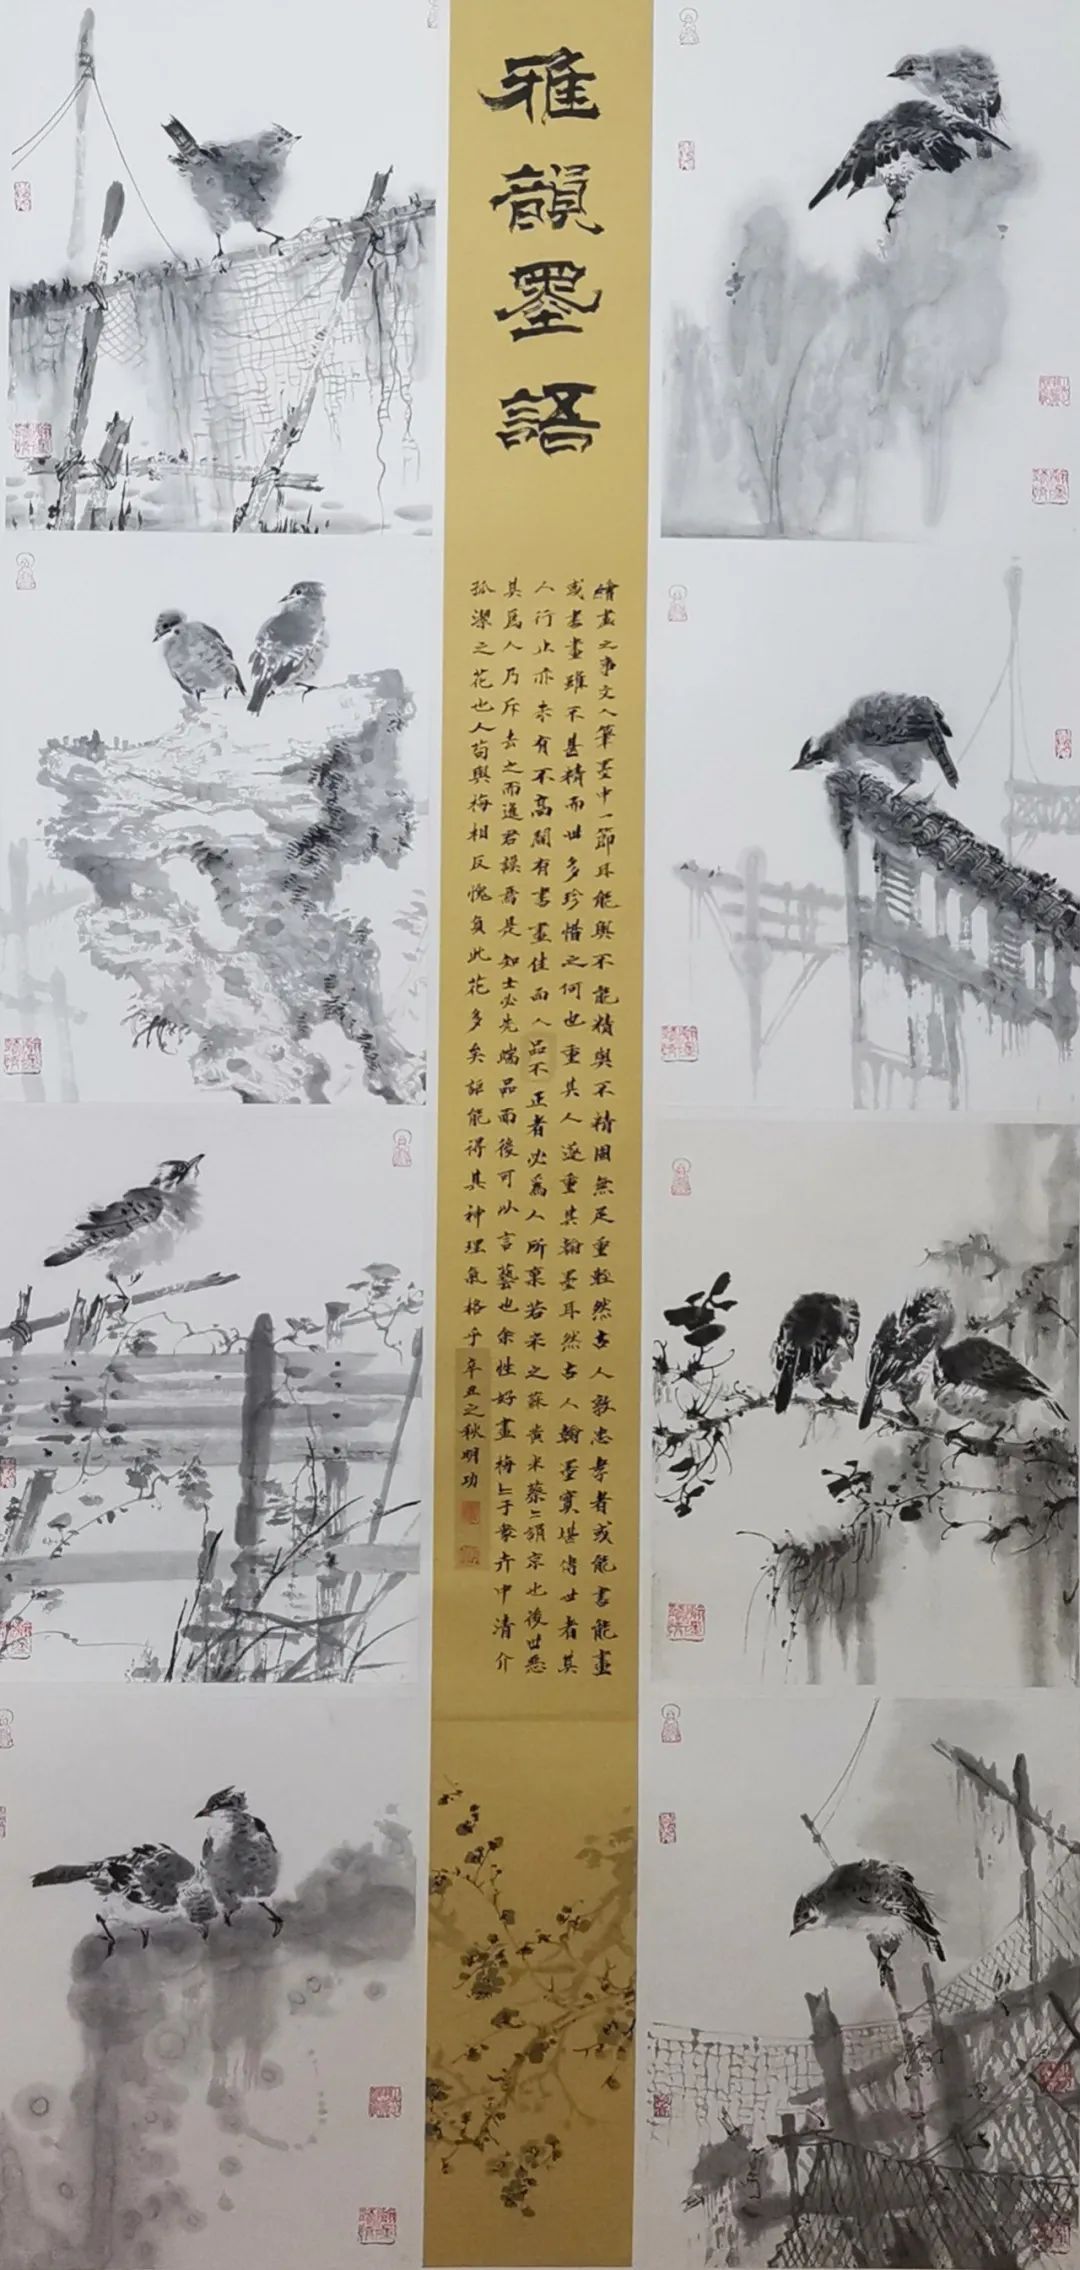 雅韻墨語
繪畫之事文人筆墨中一節耳能與不能精與不精固無足重輕然古人敦忠孝者或能書能畫
或書畫雖不甚精而世多珍惜之何也重其人遂重其翰墨耳然古人翰墨寔堪傳世者其
人行止亦未有不高間有書畫佳而人品不正者必為人所棄若宋之蘇黃米蔡〻謂京也後世惡
其爲人乃斥去之而進君謨焉是知士必先端品而後可以言藝也余性好畫梅〻于衆卉中清介
孤潔之花也人苟與梅相反愧負此花多矣詎能得其神理氣格乎辛丑之秋明功